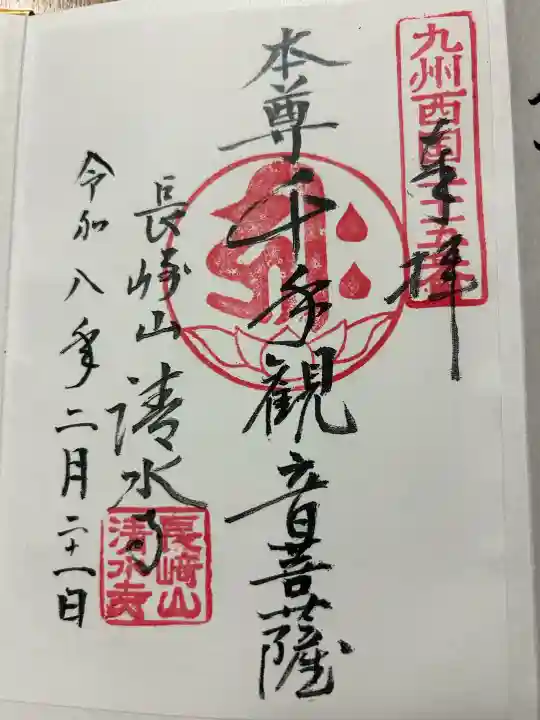 九州西国二十五番
奉拝
本尊千手観音菩薩
長崎山清水寺
長崎山
清水寺
令和八年二月二十一日